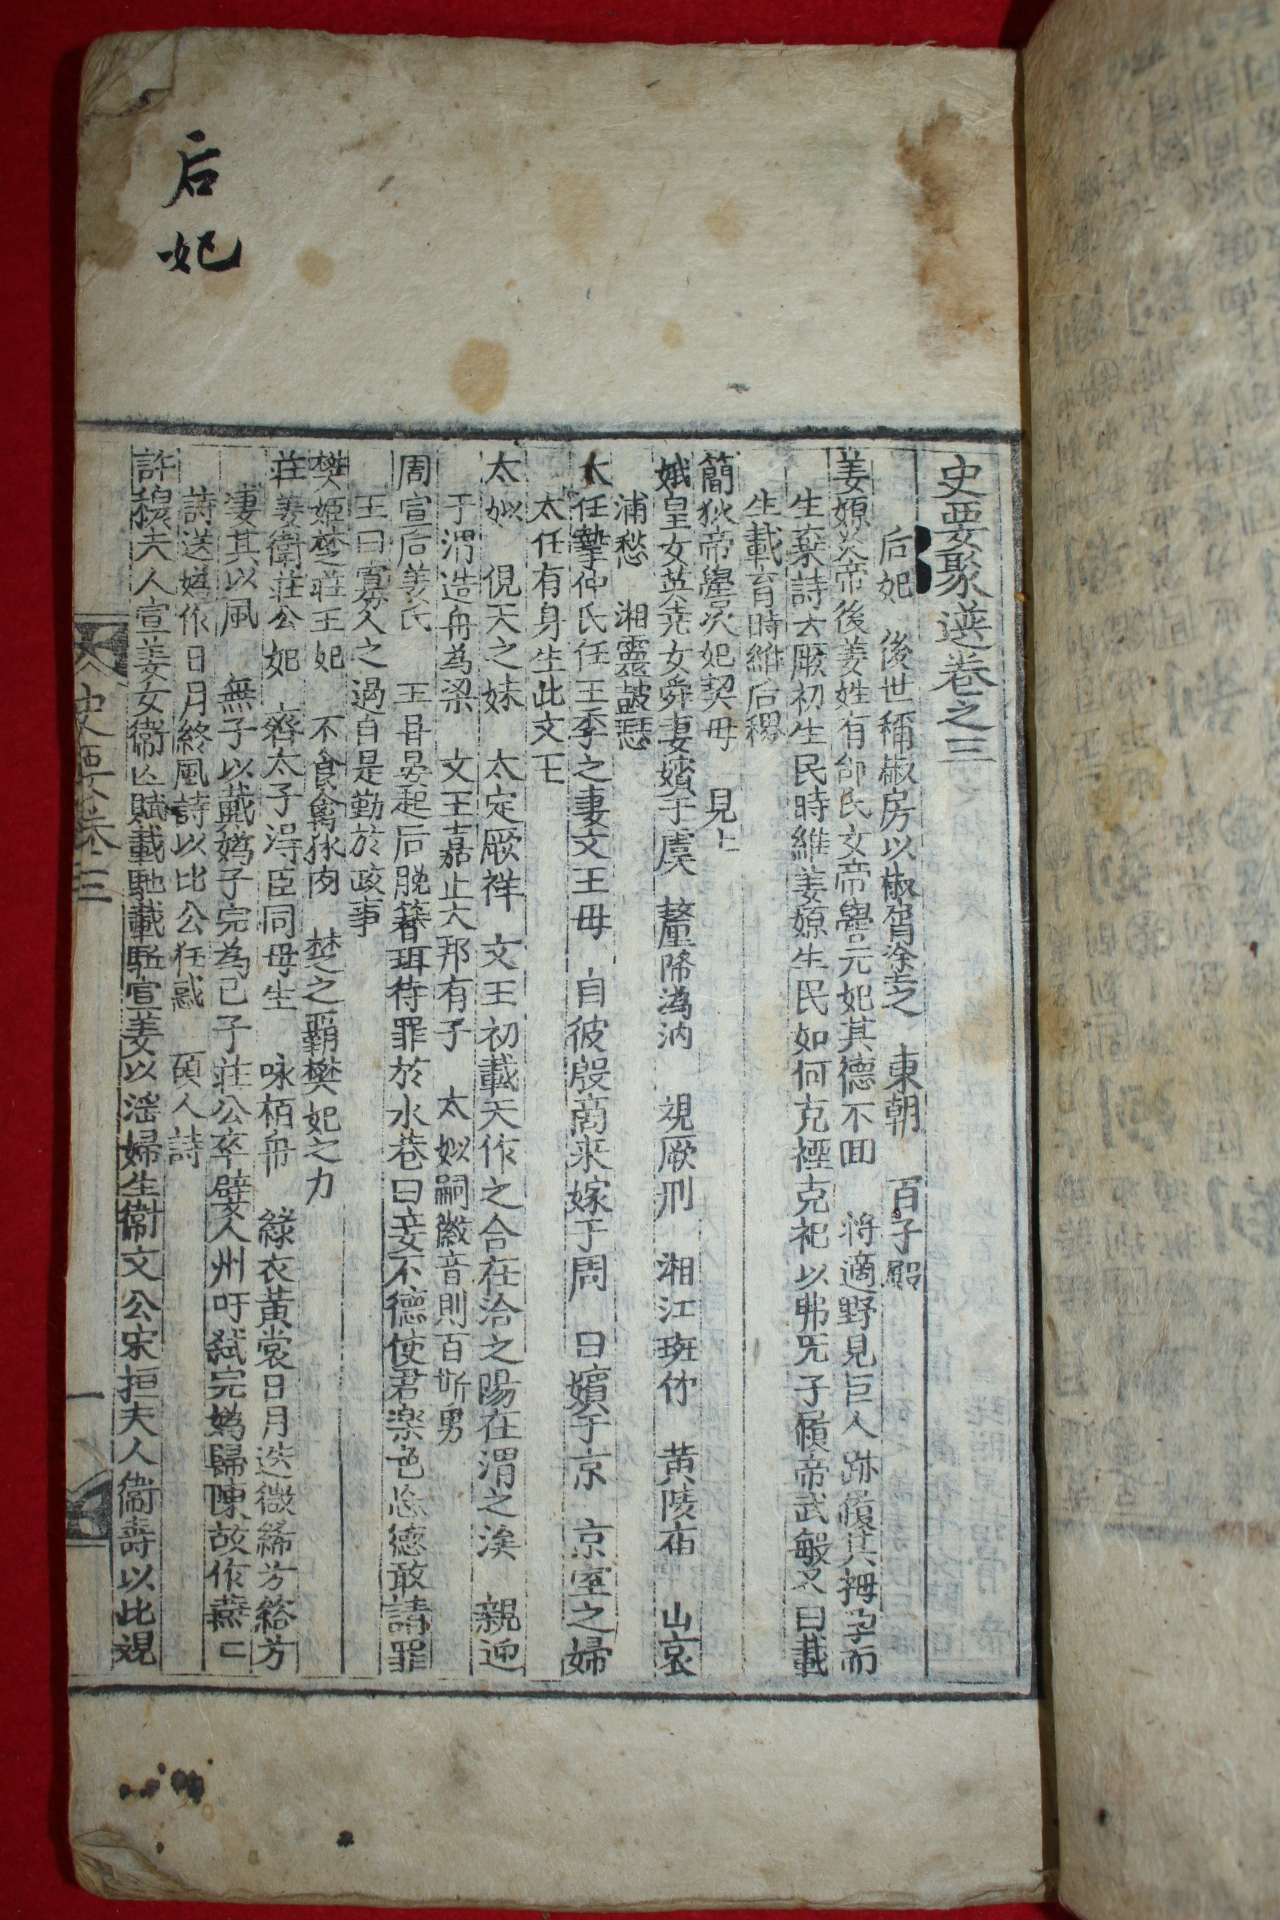 后妃
史要聚選卷之三
后妃　後世稱椒房以椒屑塗之　東朝　百子殿
姜嫄炎帝後姜姓有邰氏女帝嚳元妃其德不回　將適野見巨人跡履其拇孕而
生棄詩云厥初生民時維姜嫄生民如何克禋克祀以弗旡子履帝武敏又曰載
生載育時維后稷
簡狄帝嚳次妃契母　見上
娥皇女英堯女舜妻嬪于虞　釐降溈汭　視厥刑　湘江斑竹　黃陵廟　山哀
浦愁　湘靈皷瑟
太任摯仲氏任王季之妻文王母　自彼殷商来嫁于周　曰嬪于京　京室之婦
太任有身生此文王
太姒　俔天之妹　太定厥祥　文王初載天作之合在洽之陽在渭之涘　親迎
于渭造舟為梁　文王嘉止大邦有子　太姒嗣徽音則百斯男
周宣后姜氏　王甞晏起后脫簪珥待罪於水巷曰妾不德使君楽色忘德敢請罪
王曰寡人之過自是勤於政事
樊姬楚莊王妃　不食禽獸肉　楚之霸樊妃之力
莊姜衛莊公妃　齊太子淂臣同母生　咏栢舟　綠衣黃裳日月迭微絺兮綌兮
凄其以風　無子以戴嬀子完為己子莊公卒嬖人州吁弒完嬀歸陳故作燕二
詩送嬀作日月終風詩以比公狂惑　碩人詩
許穆夫人宣姜女衞亡賦載馳載驅宣姜以淫婦生衞文公宋桓夫人衞壽以此視
史要卷三
一